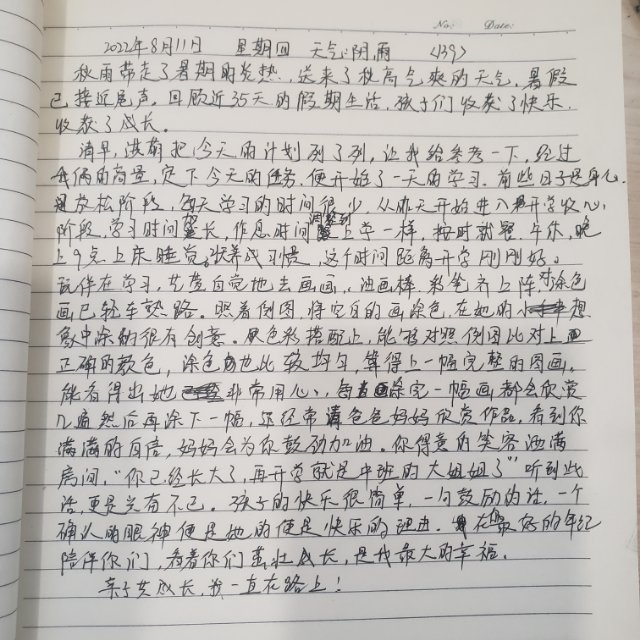 No: Date:
2022年8月11日 星期四 天气:阴雨 (139)
秋雨带走了暑期的炎热,送来了秋高气爽的天气,暑假
已接近尾声。回顾近35天的假期生活,孩子们收获了快乐,
收获了成长。
清早,把今天的计划列了列,让我给参考一下,经过
我俩的商量,定下今天的任务,便开始了一天的学习.前些日子是身心
放松阶段,每天学习的时间很少,从昨天开始进入开学收心
阶段,学习时间加长,作息时间调整到上学一样,按时就寝.午休,晚
上9点上床睡觉,养成习惯,这个时间距离开学刚刚好。
玩伴在学习,自觉地去画画,油画棒,彩笔齐上阵对涂色
画已轻车熟路。照着例图,将空白的画涂色,在她的想
象中涂的很有创意。色彩搭配上,能够对照例图比对上
正确的颜色,涂色也比较均匀,算得上一幅完整的图画,
能看得出她非常用心,每涂完一幅画都会欣赏
几遍然后再涂下一幅,还经常请爸爸妈妈欣赏作品,看到你
满满的自信,妈妈会为你鼓劲加油。你得意的笑容洒满
房间,“你已经长大了,再开学就是中班的大姐姐了”听到此
话,更是兴奋不已。孩子的快乐很简单,一句鼓励的话,一个
确认的眼神便是她的便是快乐的源泉.我在最好的年纪
陪伴你们,看着你们茁壮成长,是我最大的幸福。
亲子共成长,我一直在路上!